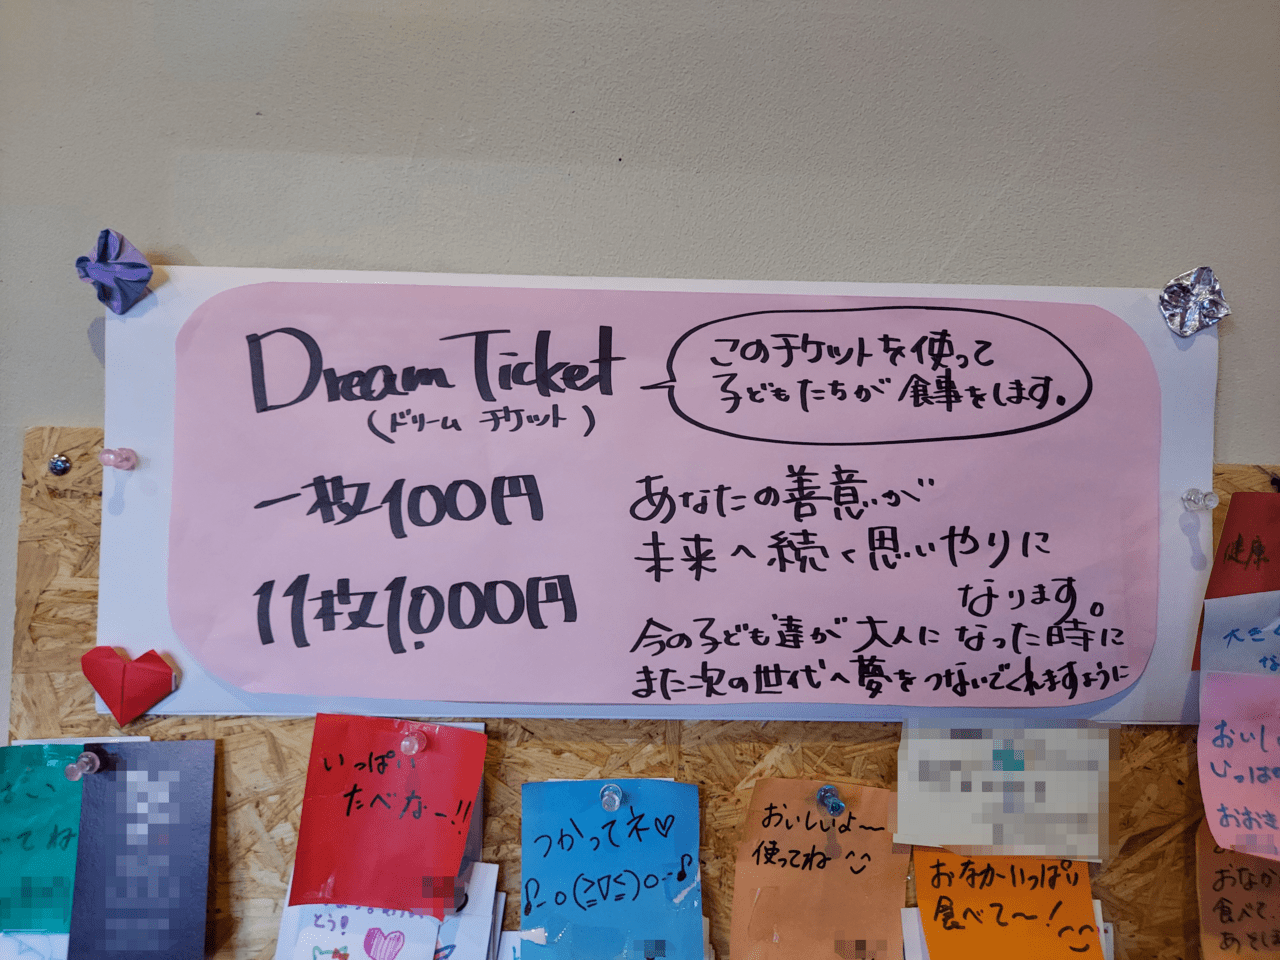 Dream Ticket
(ドリーム チケット)
このチケットを使って
子どもたちが食事をします。
一枚100円
11枚1,000円
あなたの善意が
未来へ続く思いやりに
なります。
今の子ども達が大人になった時に
また次の世代へ夢をつないでくれますように
いっぱい
たべなー!!
つかってネ♡
♪-o(≧∇≦)o-♪
おいしいよ〜
使ってね
おなかいっぱい
食べて〜!
とう!
てね
健康
大きく
な
おいし
いっぱい
おおき
おなか
食べて